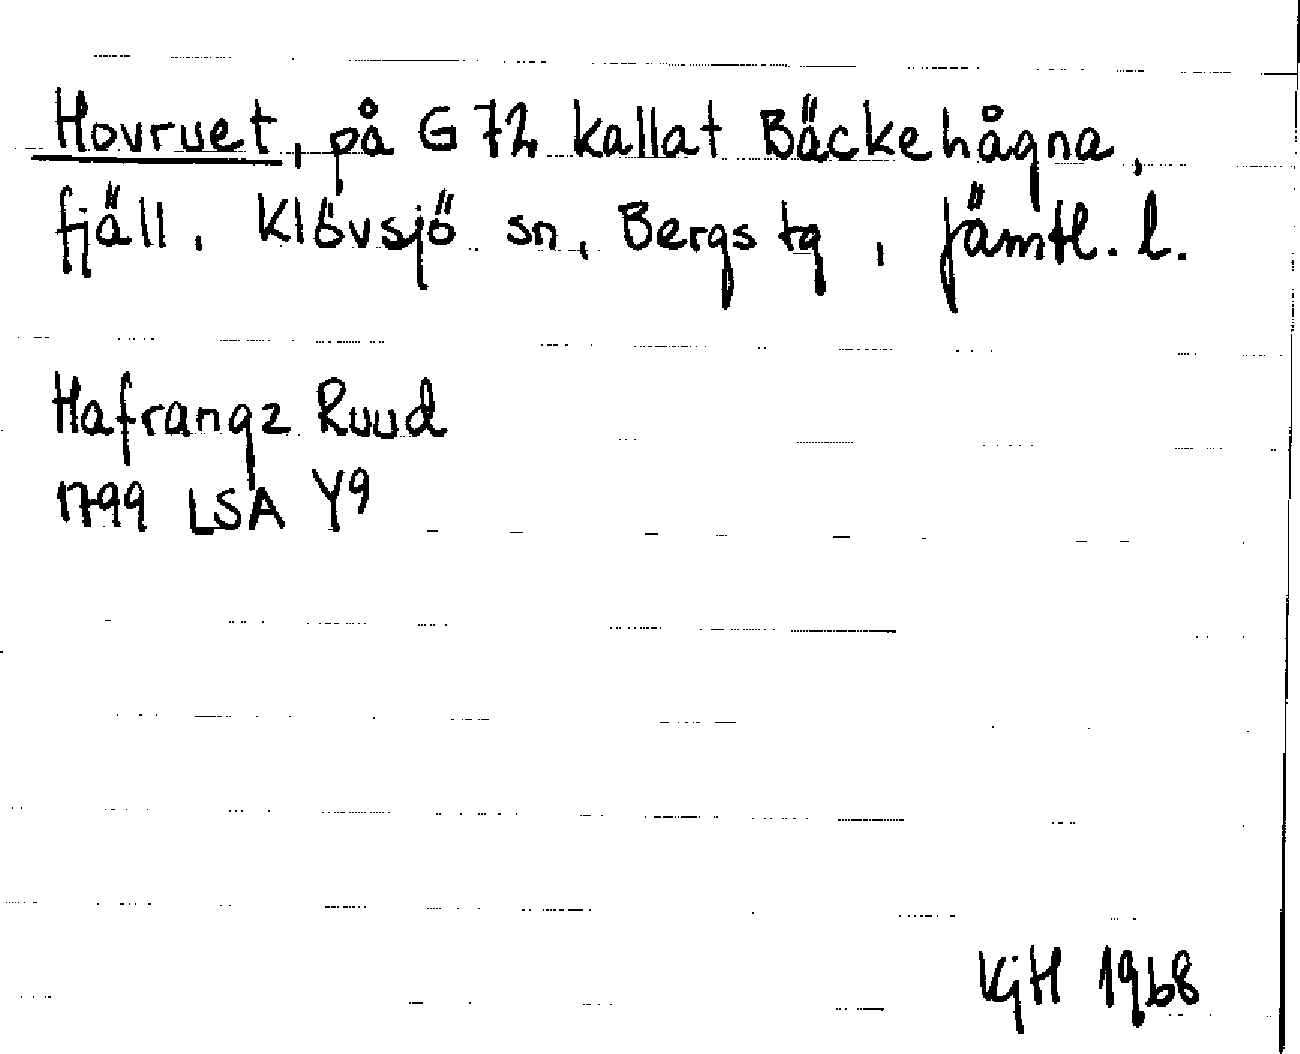 Hovruet, på G 72 kallat Bäckehågna,
fjäll, Klövsjö sn, Bergs tg, Jämtl. l.
Hafrangz Ruud
1799 LSA Y9
KjH 1968